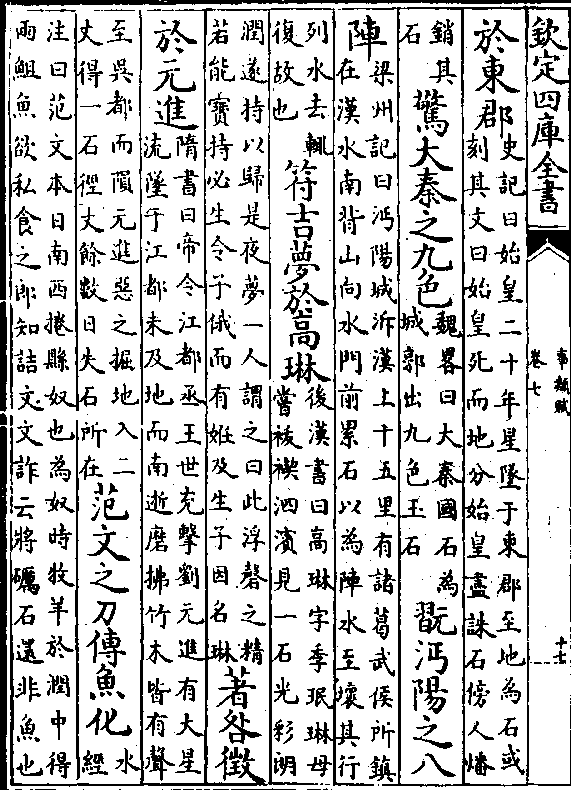 欽定四庫全書
事類賦
卷七
十七
於東郡
史記曰始皇二十年星墜于東郡至地為石或
刻其文曰始皇死而地分始皇盡誅石傍人燔
銷其
石
驚大秦之九色
魏畧曰大秦國石為
城郭出九色玉石
翫沔陽之八
陣
梁州記曰沔陽城泝漢上十五里有諸葛武侯所鎮
在漢水南背山向水門前累石以為陣水至壞其行
列水去輒
復故也
符吉夢於高琳
後漢書曰高琳字季珉琳母
嘗祓禊泗濱見一石光彩朗
潤遂持以歸是夜夢一人謂之曰此浮磬之精
若能寶持必生令子俄而有姙及生子因名琳
著咎徵
於元進
隋書曰帝令江都丞王世充擊劉元進有大星
流墜于江都未及地而南逝磨拂竹木皆有聲
至吳都而隕元進惡之掘地入二
丈得一石徑丈餘數日失石所在
范文之刀傳魚化
水
經
注曰范文本日南西捲縣奴也為奴時牧羊於潤中得
兩魚欲私食之郎知詰文文詐云將礪石還非魚也